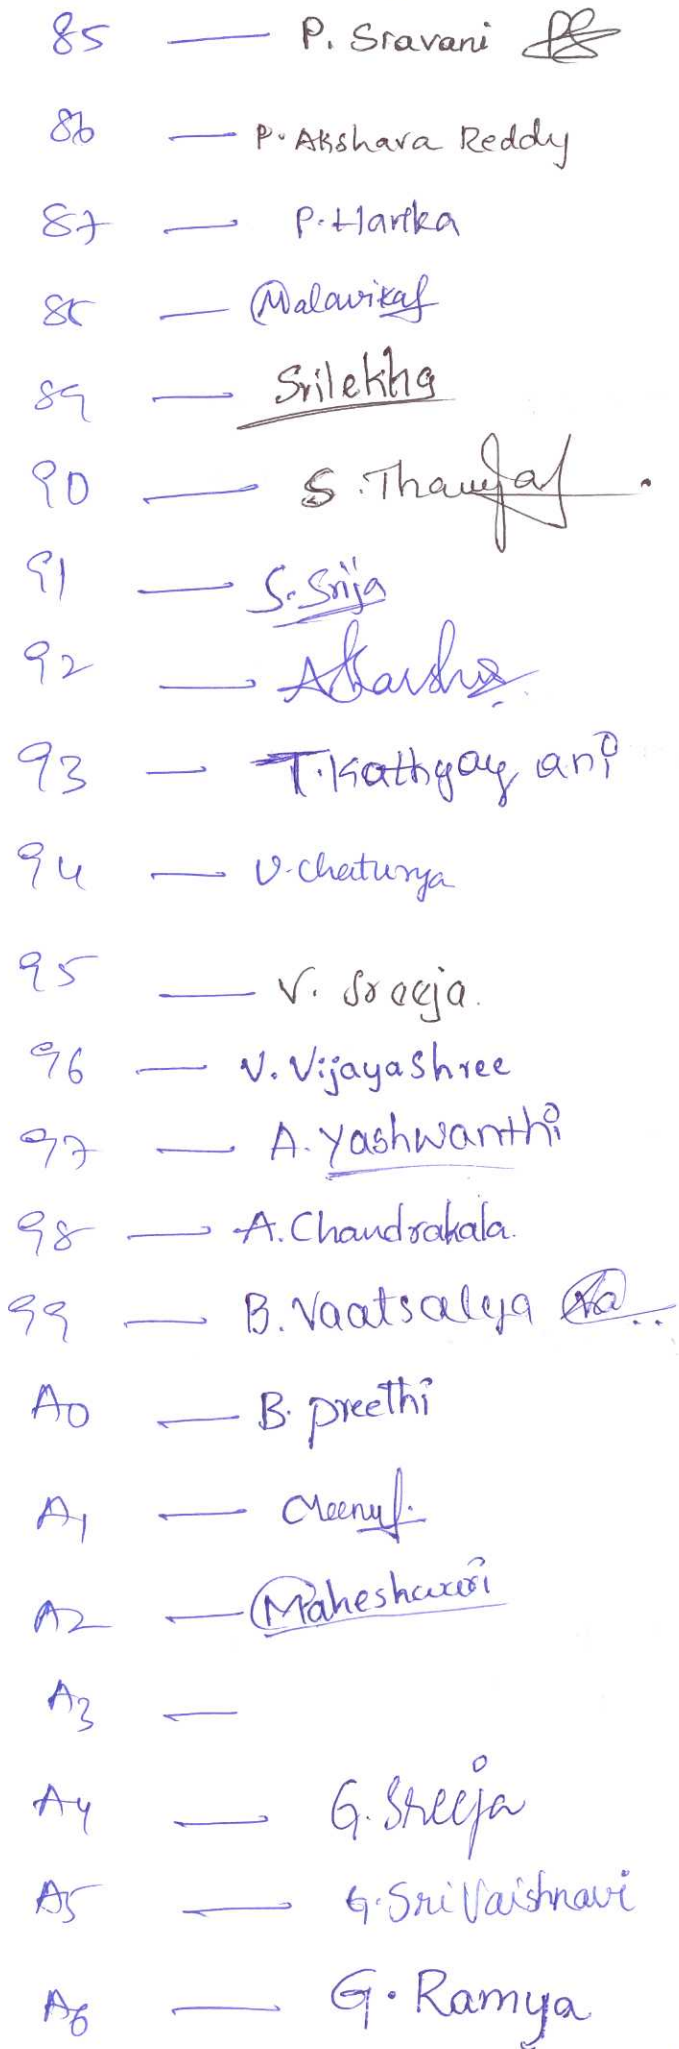 85 — P. Sravani
86 — P. Akshara Reddy
87 — P. Harika
88 — Malavika
89 — Srilekha
90 — S. Thanuja
91 — S. Srija
92 — Akarsha
93 — T. Kathyay ani
94 — V. Chaturya
95 — V. Sreeja.
96 — V. Vijayashree
97 — A. Yashwanthi
98 — A. Chandrakala.
99 — B. Vaatsalya
A0 — B. preethi
A1 —
A2 — Maheshwari
A3 —
A4 — G. Sreeja
A5 — G. Sri Vaishnavi
A6 — G. Ramya